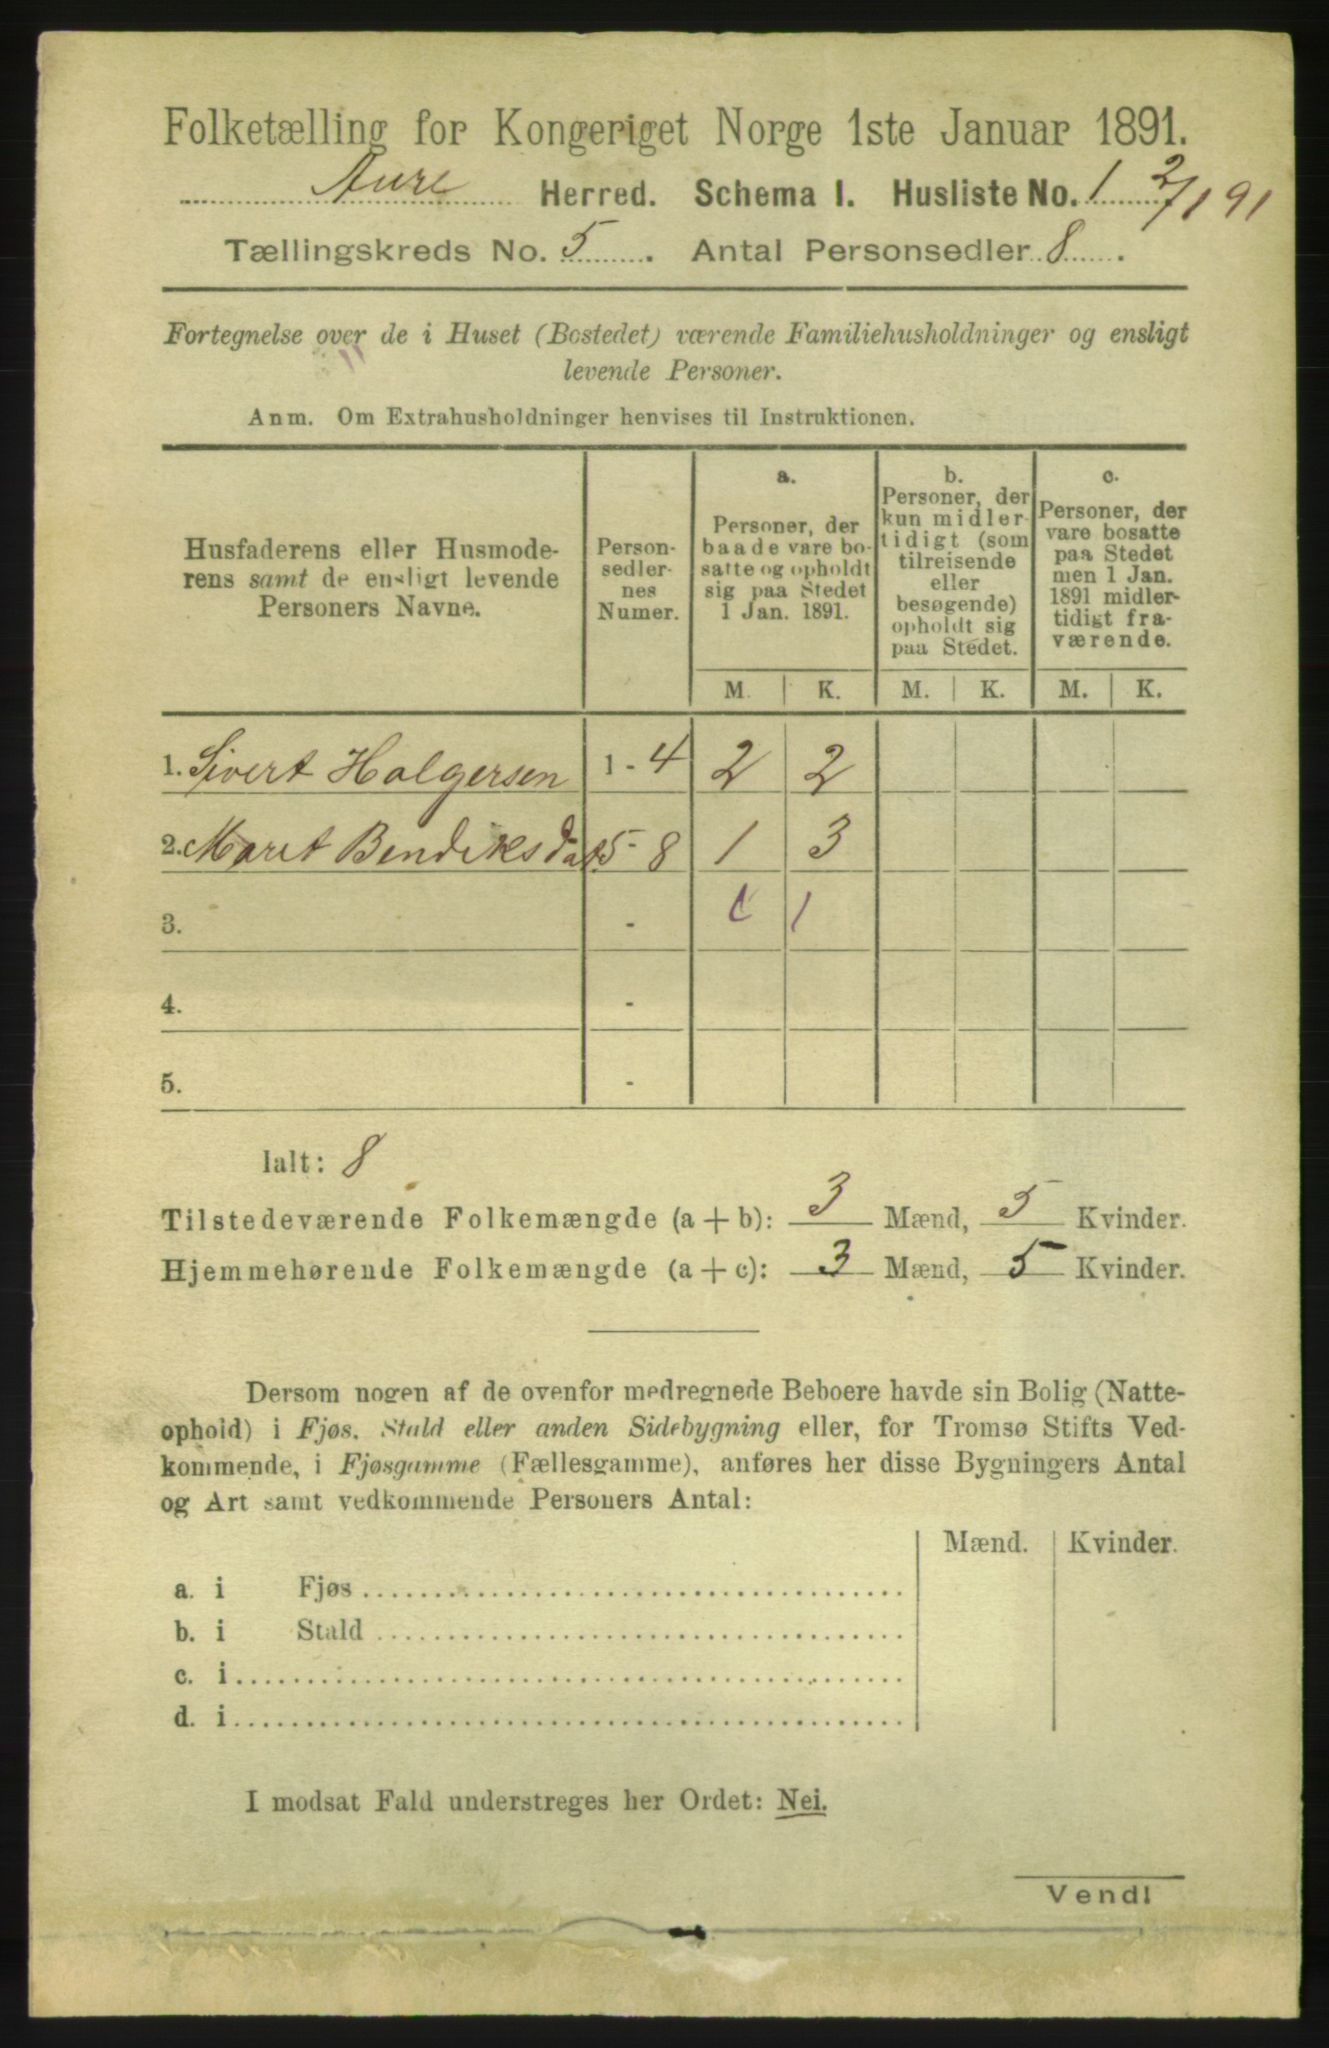 Folketælling for Kongeriget Norge 1ste Januar 1891.
Aure Herred. Schema I. Husliste No. 1 2/1 91
Tællingskreds No. 5. Antal Personsedler 8.
Fortegnelse over de i Huset (Bostedet) værende Familiehusholdninger og ensligt
levende Personer.
Anm. Om Extrahusholdninger henvises til Instruktionen.
Husfaderens eller Husmode-
rens samt de ensligt levende
Personers Navne.
Person-
sedler-
nes
Numer.
a.
Personer, der
baade vare bo-
satte og opholdt
sig paa Stedet
1 Jan. 1891.
b.
Personer, der
kun midler-
tidigt (som
tilreisende
eller
besøgende)
opholdt sig
paa Stedet.
c.
Personer, der
vare bosatte
paa Stedet
men 1 Jan.
1891 midler-
tidigt fra-
værende.
M. K. M. K. M. K.
1. Sivert Holgersen 1 - 4 2 2
2. Maret Bendiksdat 5 - 8 1 3
3. - 1 1
4. -
5. -
Ialt: 8
Tilstedeværende Folkemængde (a + b): 3 Mænd, 5 Kvinder.
Hjemmehørende Folkemængde (a + c): 3 Mænd, 5 Kvinder.
Dersom nogen af de ovenfor medregnede Beboere havde sin Bolig (Natte-
ophold) i Fjøs, Stald eller anden Sidebygning eller, for Tromsø Stifts Ved-
kommende, i Fjøsgamme (Fællesgamme), anføres her disse Bygningers Antal
og Art samt vedkommende Personers Antal:
Mænd. Kvinder.
a. i Fjøs
b. i Stald
c. i
d. i
I modsat Fald understreges her Ordet: Nei.
Vend!